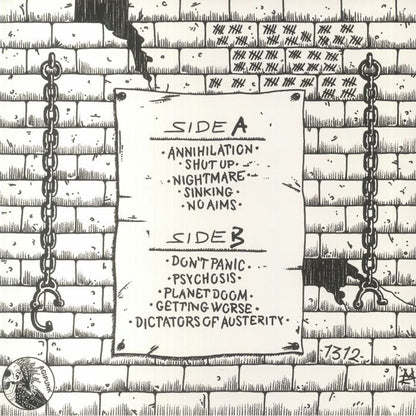 SIDE A
ANNIHILATION •
• SHUT UP •
• NIGHTMARE •
SINKING •
• NO AIMS •
SIDE B
• DON'T PANIC •
PSYCHOSIS •
• PLANET DOOM •
GETTING WORSE •
• DICTATORS OF AUSTERITY •
1312